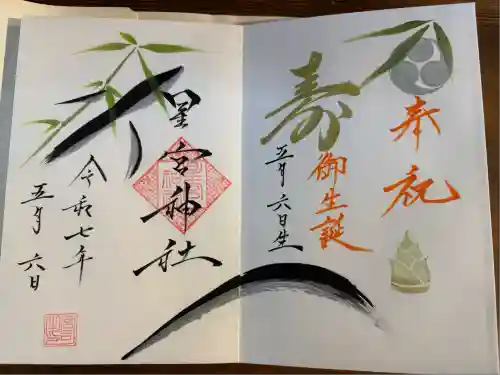 奉祝
御生誕
寿
五月六日生
星宮神社
令和七年
五月六日